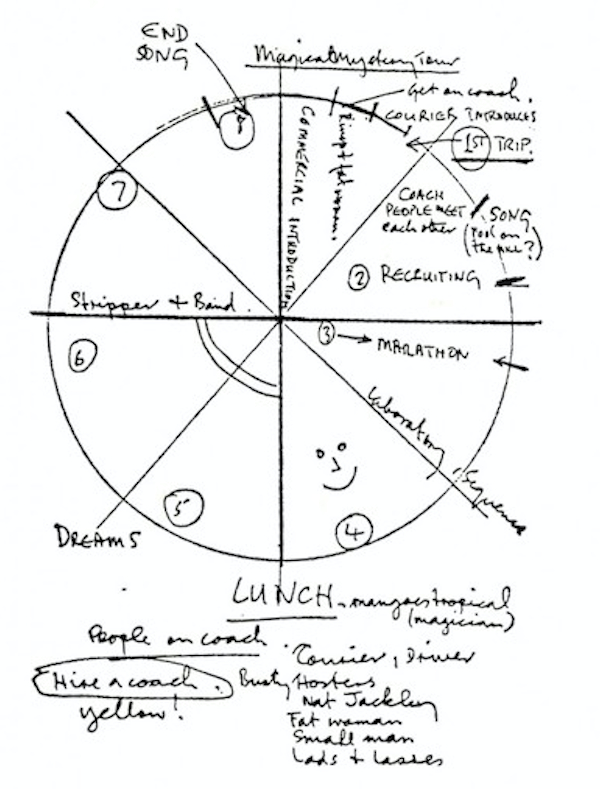 END
SONG
Magical Mystery Tour
Get on coach.
COURIER INTRODUCES
1ST TRIP.
COMMERCIAL INTRODUCTION
Ringo + fat woman.
8
7
COACH
PEOPLE MEET
each other
SONG
(Fool on
the hill?)
2 RECRUITING
Stripper + Band.
3
MARATHON
6
Laboratory Sequence
5
4
DREAMS
LUNCH, mangoes tropical
(magician)
People on coach.
Courier, Driver
Hire a coach.
Busty Hostess
yellow!
Nat Jackley
Fat woman
Small man
Lads + Lasses